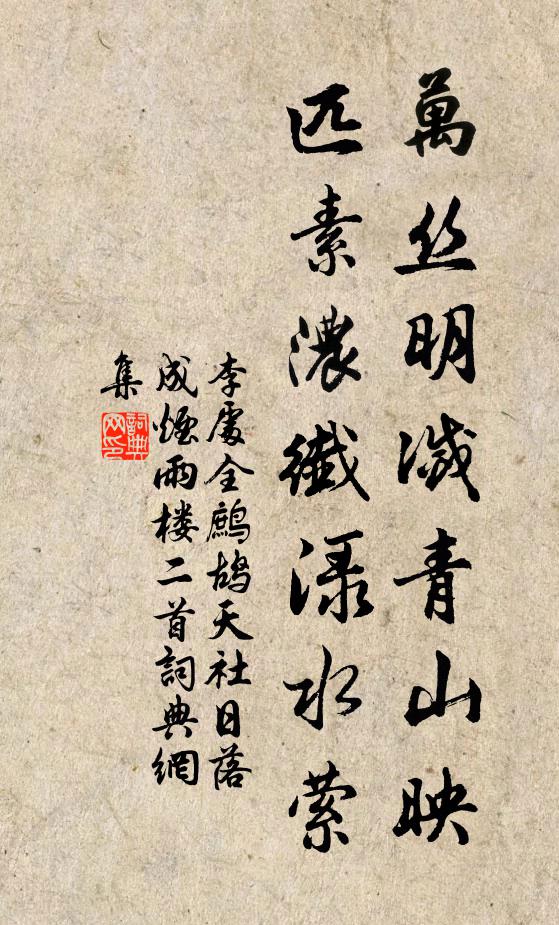 萬丝明滅青山映
匹素濃纖渌水萦
李處全鷓鴣天社日落
成煙雨楼二首詞典網
集
詞典网印